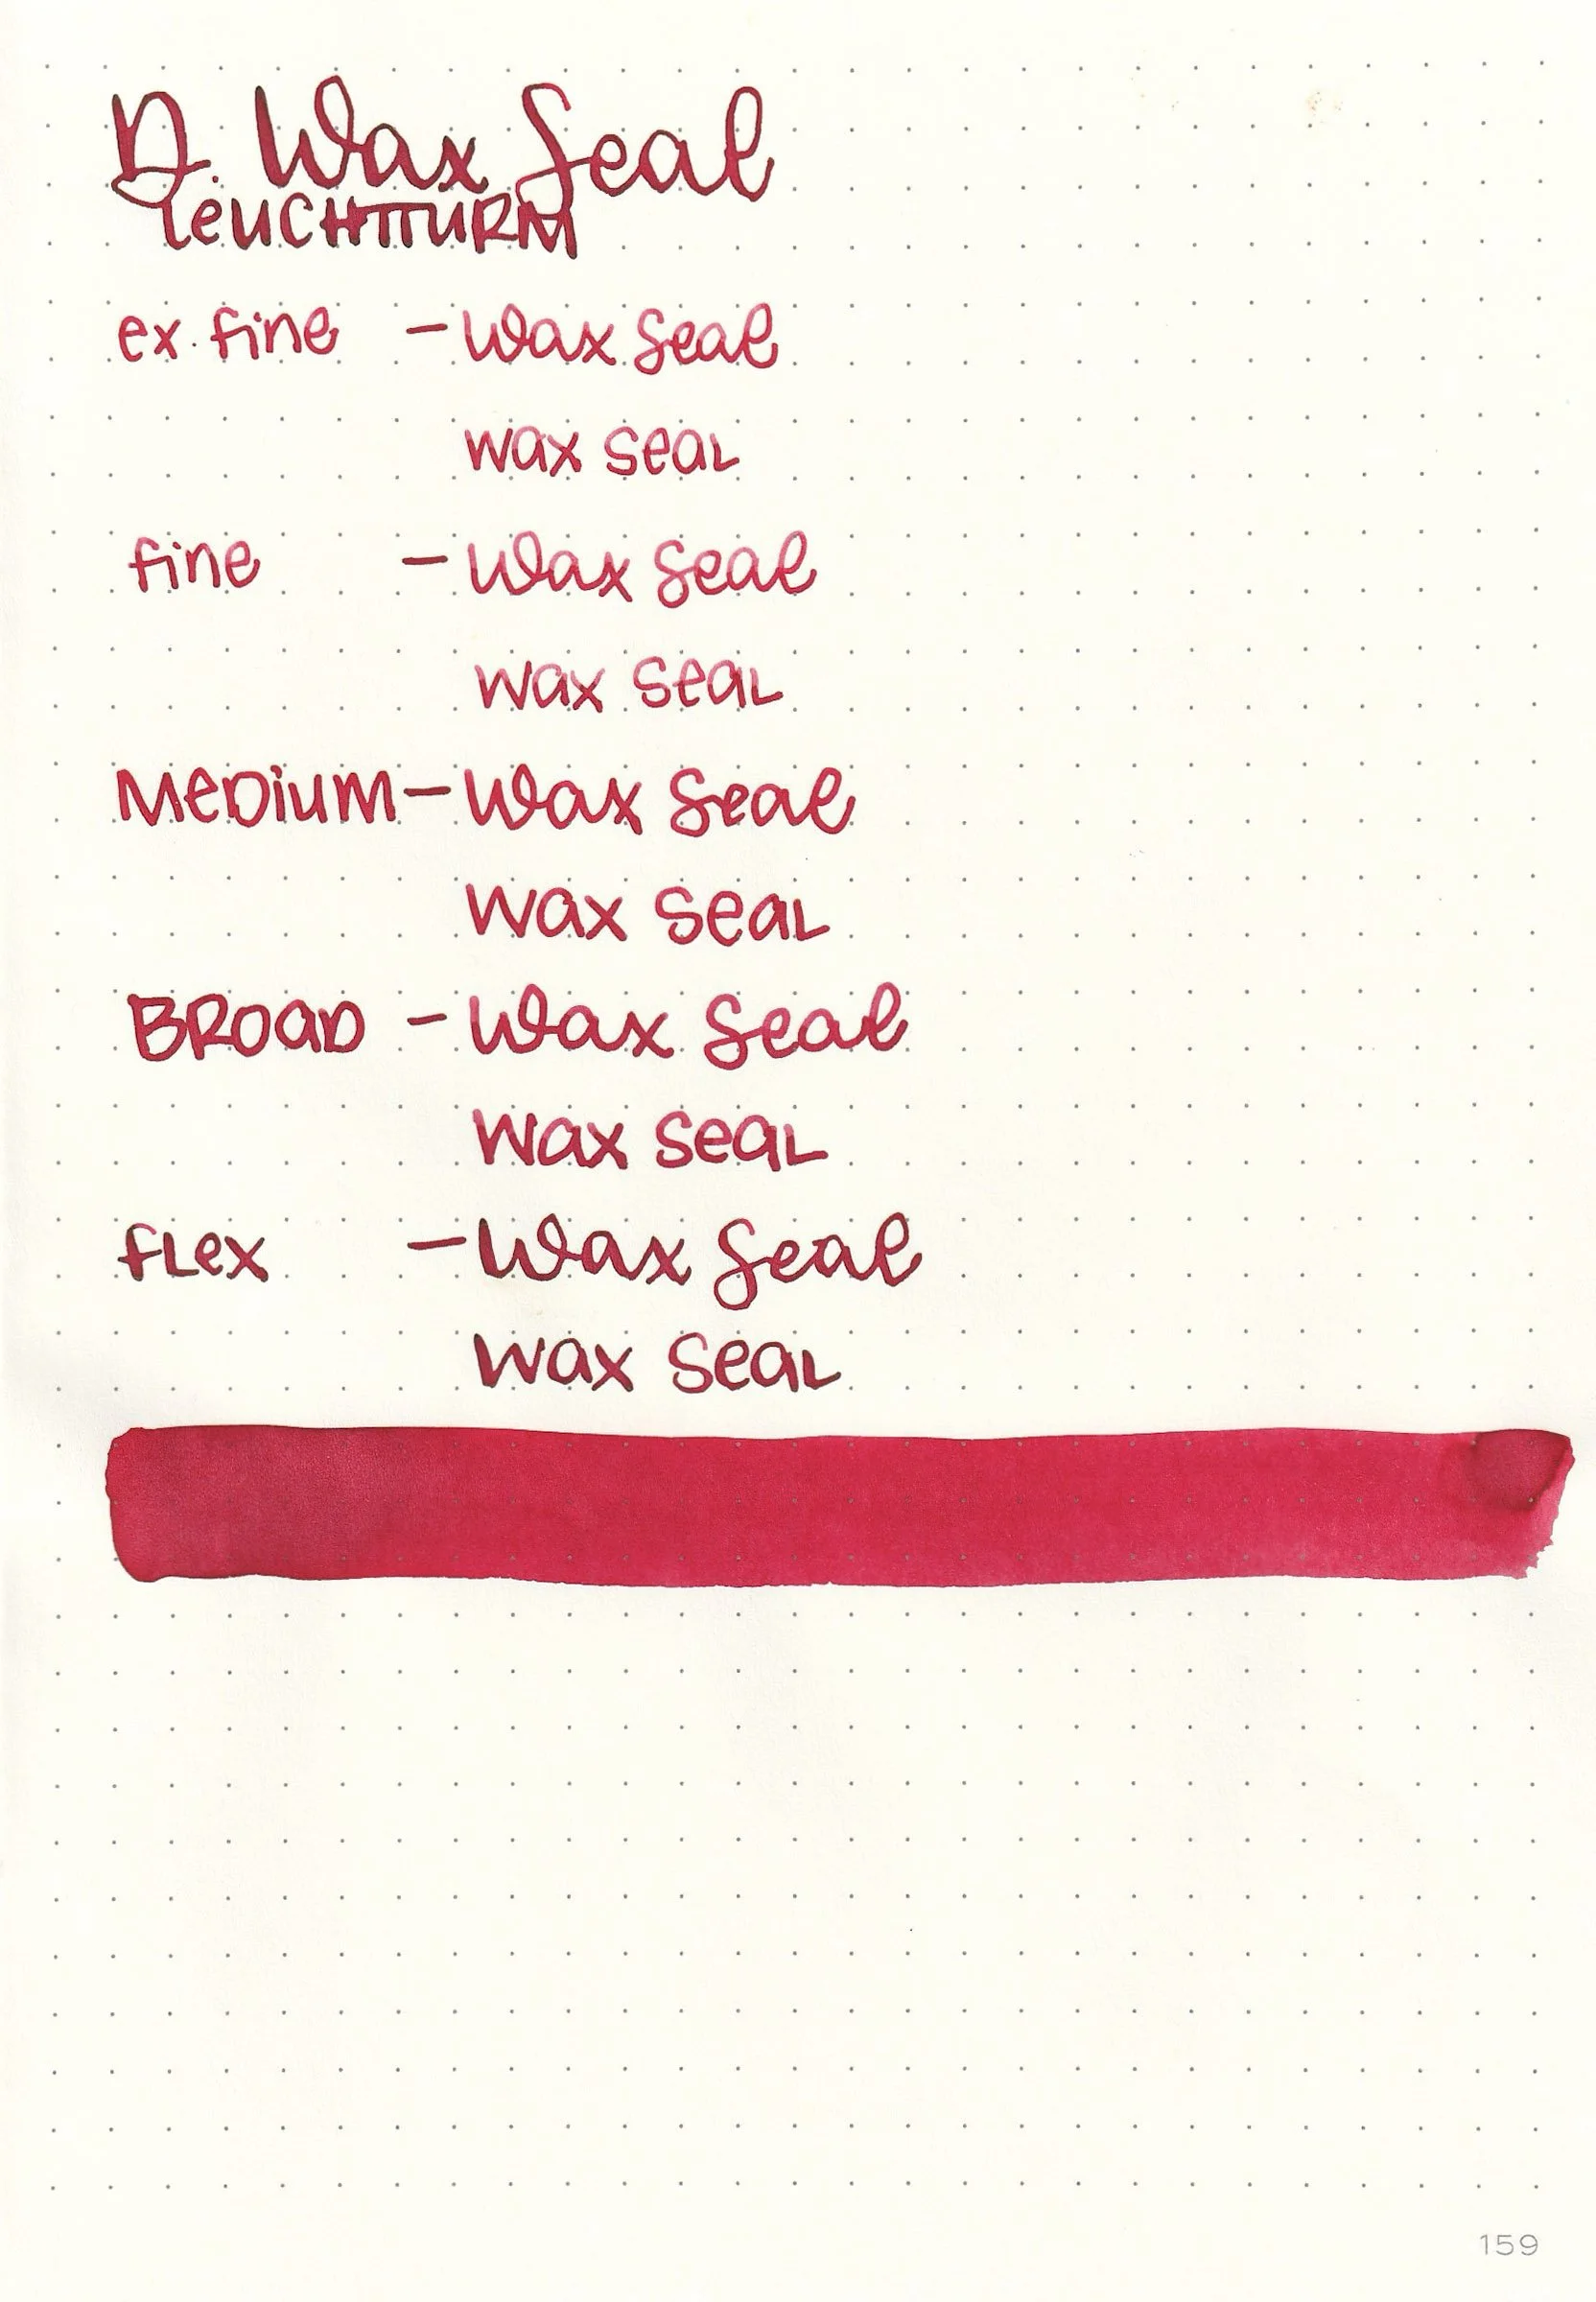 D. Wax Seal
LEUCHTTURM
ex. fine - Wax Seal
wax seal
fine - Wax Seal
wax seal
Medium - Wax Seal
wax seal
BROAD - Wax Seal
wax seal
flex - Wax Seal
wax seal
159